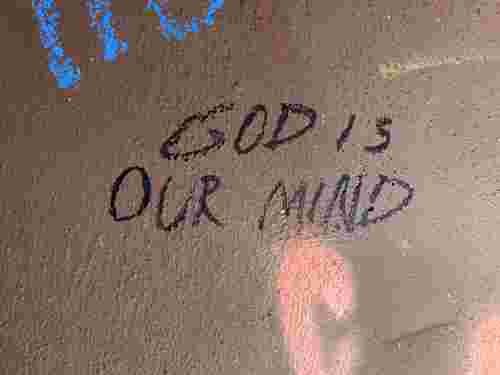 GOD IS
OUR MIND